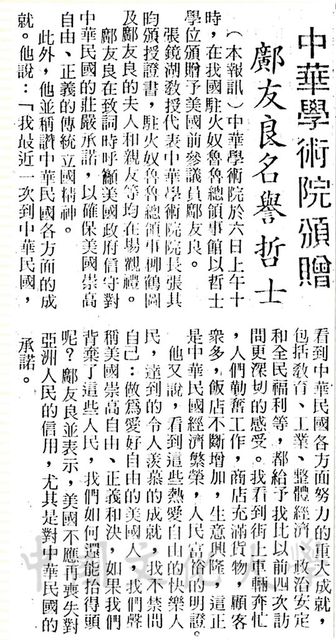 中華學術院頒贈
鄺友良名譽哲士
（本報訊）中華學術院於六日上午十
時，在我國駐火奴魯魯總領事館以哲士
學位頒贈予美國前參議員鄺友良。
張鏡湖教授代表中華學術院院長張其
昀頒授證書，駐火奴魯魯總領事柳鶴圖
及鄺友良的夫人和親友等均在場觀禮。
鄺友良在致詞時呼籲美國政府信守對
中華民國的莊嚴承諾，以確保美國崇高
自由、正義的傳統立國精神。
此外，他並稱讚中華民國各方面的成
就。他說：「我最近一次到中華民國，
看到中華民國各方面努力的重大成就，
包括教育、工業、整體經濟、政治安定
和全民福利等，都給予我比以前四次訪
問更深切的感受。我看到街上車輛奔忙
，人們勤奮工作，商店充滿貨物，顧客
衆多，飯店不斷增加，生意興隆，這正
是中華民國經濟繁榮，人民富裕的明證。
他又說，看到這些熱愛自由的快樂人
民，達到的令人羨慕的成就，我不禁問
自己：做爲愛好自由的美國人，我們聲
稱美國崇高自由、正義和決，如果我們
背棄了這些人民，我們如何還能抬得頭
呢？鄺友良並表示，美國不應再喪失對
亞洲人民的信用，尤其是對中華民國的
承諾。